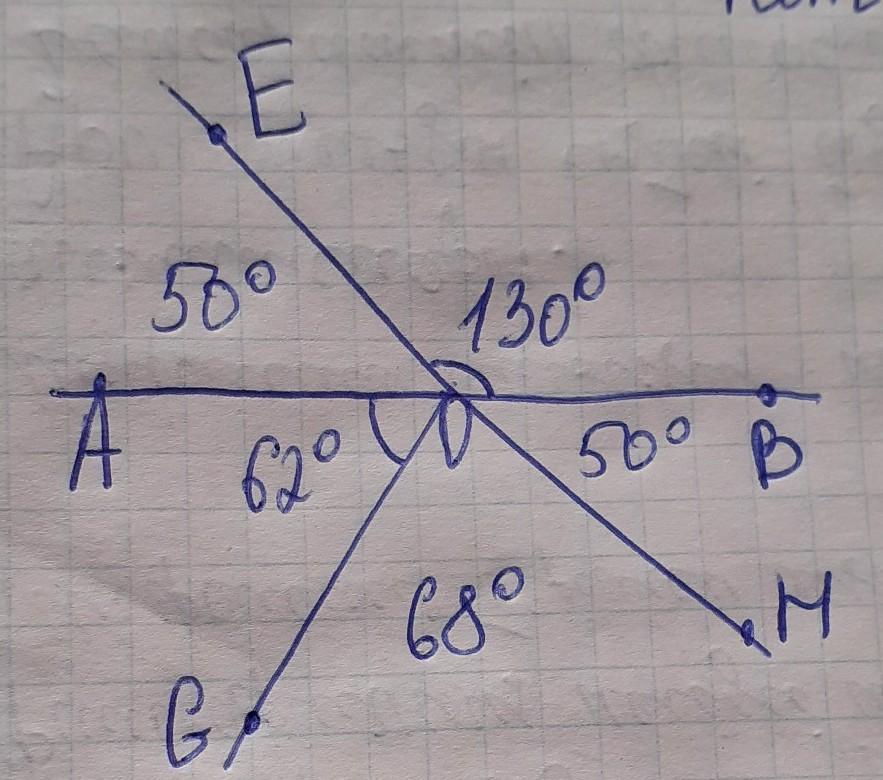 E
50°
130°
A
62°
O
50°
B
68°
M
G